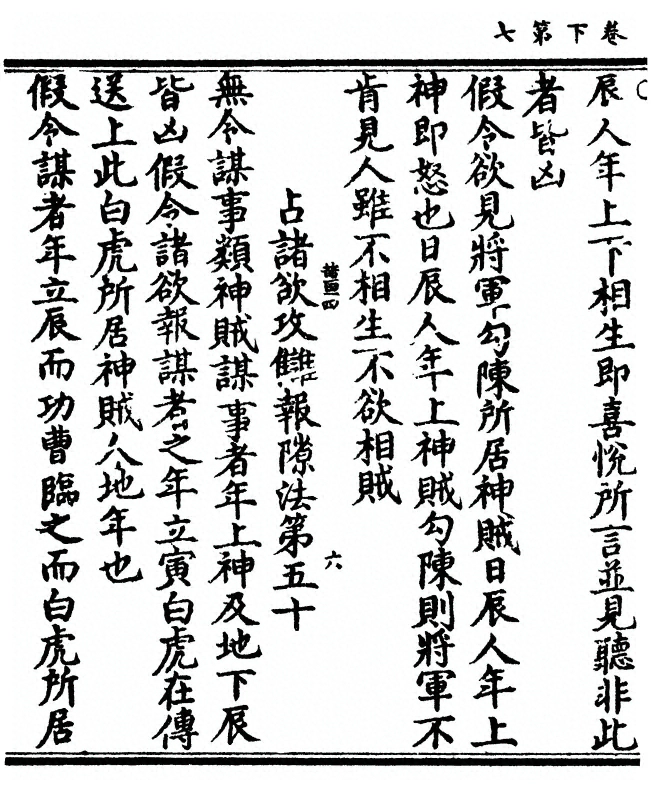 卷下第七
辰人年上下相生即喜悅所言並見聽非此
者皆凶
假令欲見將軍勾陳所居神賊日辰人年上
神即怒也日辰人年上神賊勾陳則將軍不
肯見人雖不相生不欲相賊
六
占諸欲攻讎報隙法第五十
無令謀事類神賊謀事者年上神及地下辰
皆凶假令諸欲報謀者之年立寅白虎在傳
送上此白虎所居神賊人地年也
假令謀者年立辰而功曹臨之而白虎所居